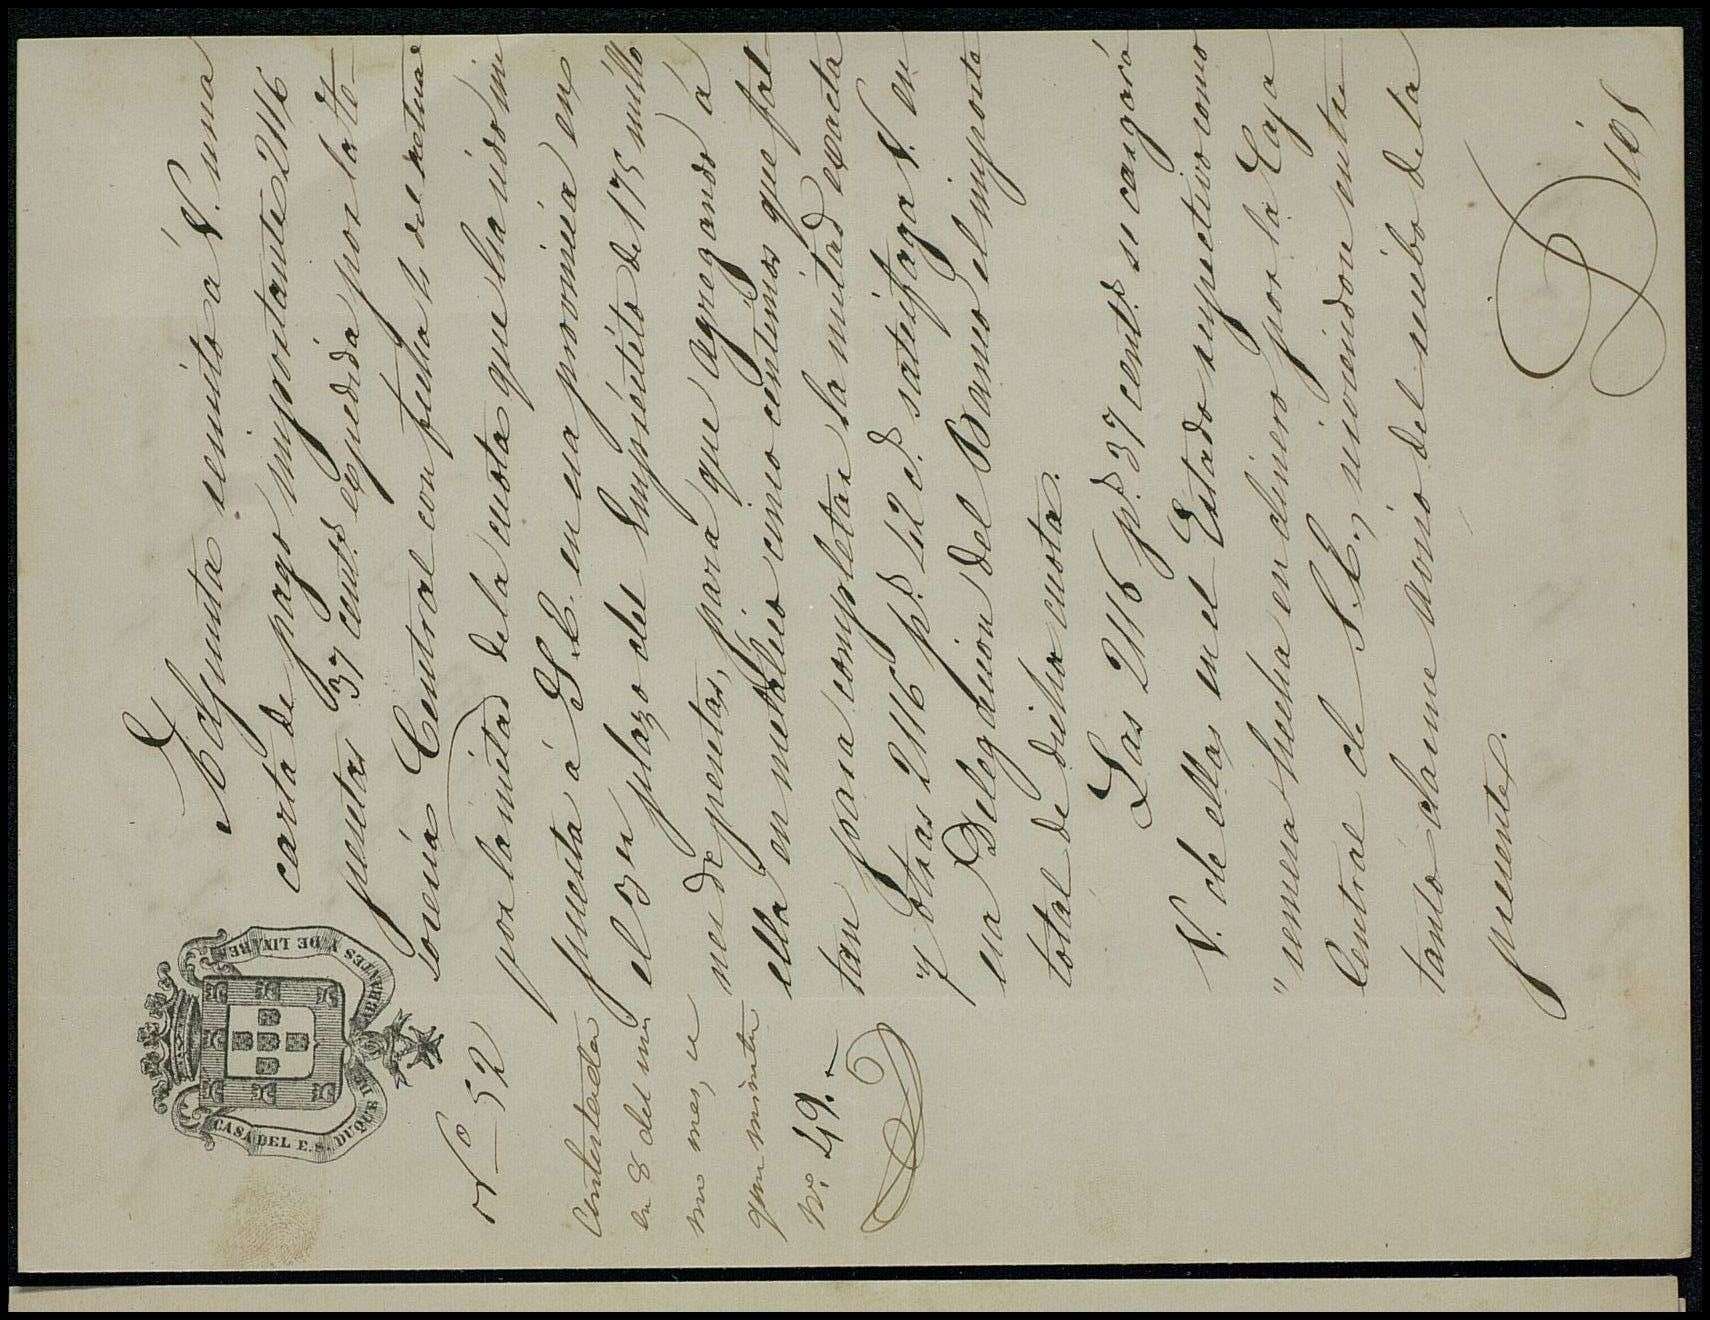 CASA DEL E. S. DUQUE DE ABRANTES Y DE LINARES
Nº 52
Contestada
en 8 del mis
mo mes, en
quinientas
Nº 49.
Adjunta remito á V. una
carta de pago importante 2116
pesetas 37 cent.s espedida por la Te-
sorería Central con fecha 4 del actual
por la mitad de la cuota que ha sido im
puesta á S. E. en esa provincia en
el 3er plazo del Empréstito de 175 millo
nes de pesetas, para que agregando á
ella en metálico cinco centimos que fal-
tan para completar la mitad exacta
y otras 2116 p.s 42 c.s satisfaga V. en
esa Delegacion del Banco el importe
total de dicha cuota.
Las 2116 p.s 37 cent.s se cargará
V. de ellas en el Estado respectivo como
remesa hecha en dinero por la Caja
Central de S. E., sirviendose entre
tanto darme aviso del recibo de la
presente.
Dios